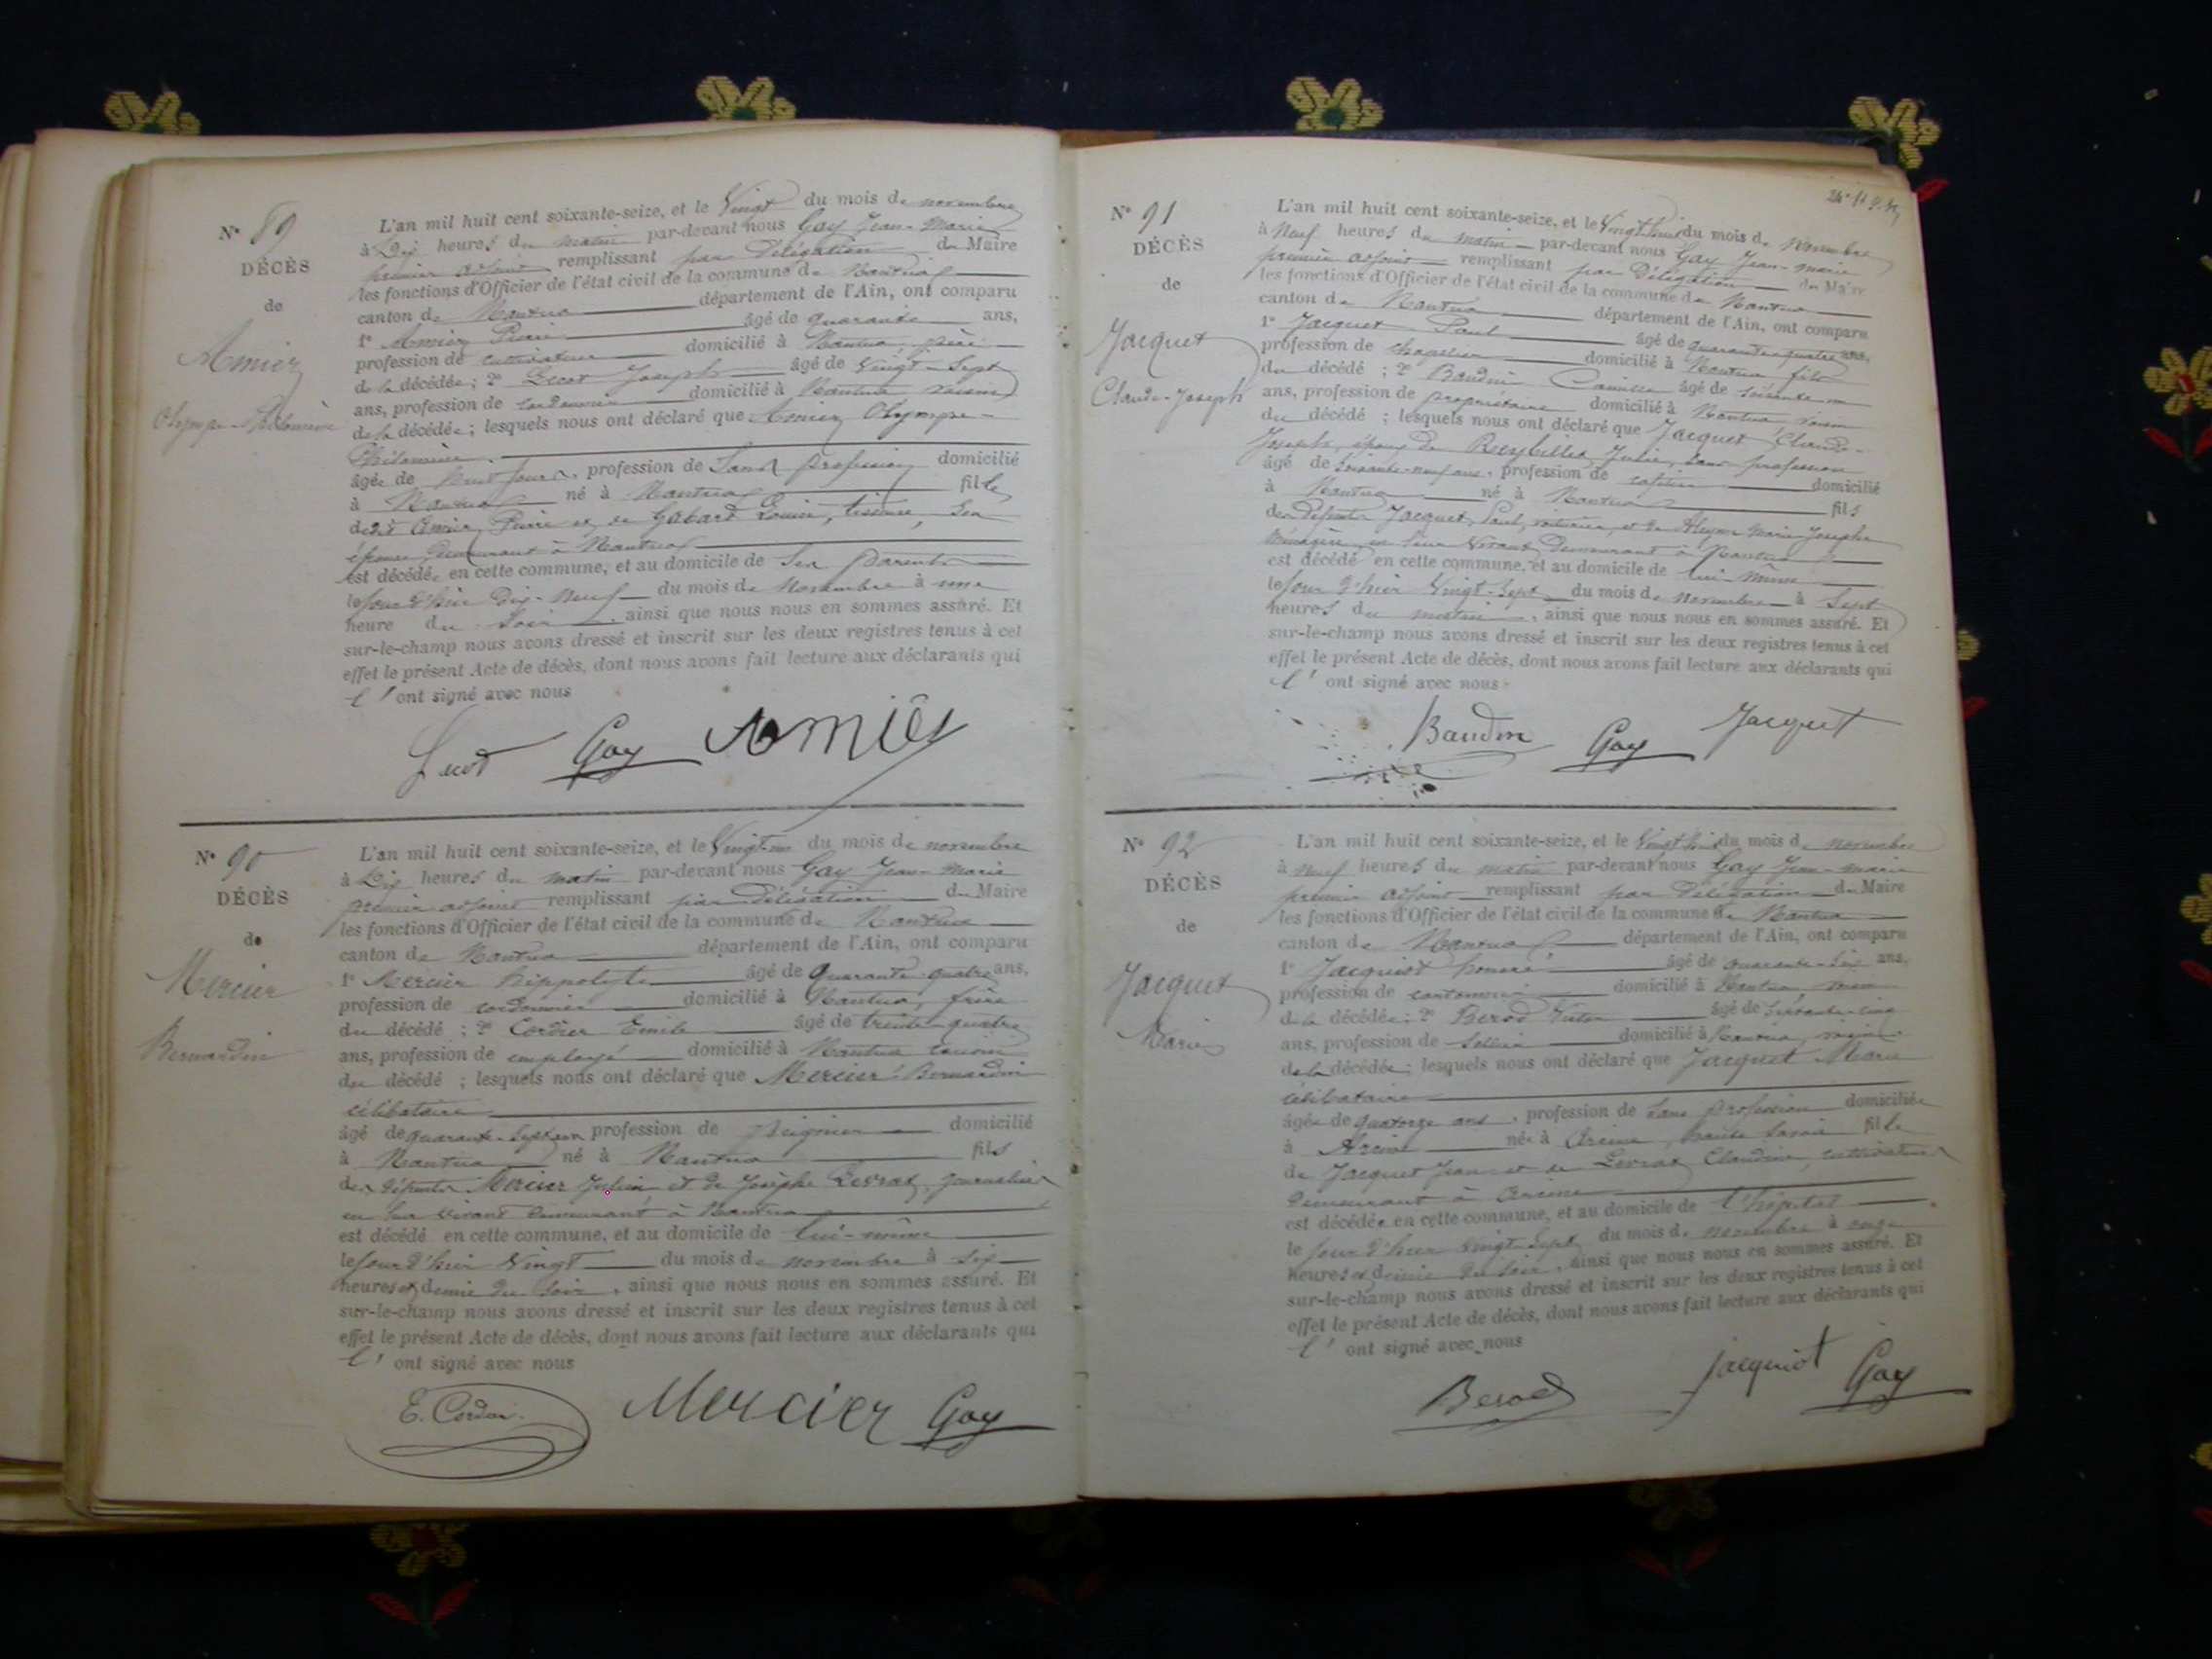 N° 89
DÉCÈS
de
Amiez
Olympe Philomène
L'an mil huit cent soixante-seize, et le Vingt du mois de novembre
à Dix heures du matin par-devant nous Gay Jean-Marie
premier adjoint remplissant par Délégation du Maire
les fonctions d'Officier de l'état civil de la commune de Nantua
canton de Nantua département de l'Ain, ont comparu
1° Amiez Pierre âgé de quarante ans,
profession de cultivateur domicilié à Nantua père
de la décédée; 2° Lecot Joseph âgé de Vingt-Sept
ans, profession de cordonnier domicilié à Nantua voisin
de la décédée; lesquels nous ont déclaré que Amiez Olympe-
Philomène
âgée de huit jours, profession de Sans profession domicilié
à Nantua né à Nantua fille
de Amiez Pierre et de Gabard Louise, tisseuse, Sa
épouse demeurant à Nantua
est décédée en cette commune, et au domicile de Ses parents
le jour d'hier Dix-Neuf du mois de Novembre à une
heure du Soir, ainsi que nous nous en sommes assuré. Et
sur-le-champ nous avons dressé et inscrit sur les deux registres tenus à cet
effet le présent Acte de décès, dont nous avons fait lecture aux déclarants qui
l' ont signé avec nous
Lecot Gay Amiés
N° 90
DÉCÈS
de
Mercier
Bernardin
L'an mil huit cent soixante-seize, et le Vingt-un du mois de novembre
à Dix heures du matin par-devant nous Gay Jean-Marie
premier adjoint remplissant par délégation du Maire
les fonctions d'Officier de l'état civil de la commune de Nantua
canton de Nantua département de l'Ain, ont comparu
1° Mercier hippolyte âgé de Quarante-quatre ans,
profession de cordonnier domicilié à Nantua, frère
du décédé; 2° Cordier Emile âgé de trente-quatre
ans, profession de employé domicilié à Nantua cousin
du décédé; lesquels nous ont déclaré que Mercier Bernardin
célibataire
âgé de quarante-Sept ans profession de Peignier domicilié
à Nantua né à Nantua fils
des défunts Mercier Julien et de Josèphe Levrat, journaliers
en leur vivant demeurant à Nantua
est décédé en cette commune, et au domicile de lui-même
le jour d'hier Vingt du mois de novembre à Six
heures et demie du Soir, ainsi que nous nous en sommes assuré. Et
sur-le-champ nous avons dressé et inscrit sur les deux registres tenus à cet
effet le présent Acte de décès, dont nous avons fait lecture aux déclarants qui
l' ont signé avec nous
E. Cordier Mercier Gay
N° 91
DÉCÈS
de
Jacquet
Claude-Joseph
L'an mil huit cent soixante-seize, et le Vingt huit du mois de Novembre
à Neuf heures du matin par-devant nous Gay Jean-marie
premier adjoint remplissant par Délégation du Maire
les fonctions d'Officier de l'état civil de la commune de Nantua
canton de Nantua département de l'Ain, ont comparu
1° Jacquet Paul âgé de quarante-quatre ans,
profession de chapelier domicilié à Nantua fils
du décédé; 2° Baudin Camille âgé de soixante-un
ans, profession de propriétaire domicilié à Nantua voisin
du décédé; lesquels nous ont déclaré que Jacquet Claude-
Joseph, époux de Reybillet Julie, Sans profession
âgé de Soixante-neuf ans, profession de cafetier domicilié
à Nantua né à Nantua fils
des défunts Jacquet Paul, voiturier, et de Marie-Josephe
ménagère, en leur vivant demeurant à Nantua
est décédé en cette commune, et au domicile de lui-même
le jour d'hier Vingt-Sept du mois de novembre à Sept
heures du matin, ainsi que nous nous en sommes assuré. Et
sur-le-champ nous avons dressé et inscrit sur les deux registres tenus à cet
effet le présent Acte de décès, dont nous avons fait lecture aux déclarants qui
l' ont signé avec nous
Baudin Gay Jacquet
N° 92
DÉCÈS
de
Jacquet
Marie
L'an mil huit cent soixante-seize, et le Vingt huit du mois de novembre
à neuf heures du matin par-devant nous Gay Jean-marie
premier adjoint remplissant par Délégation du Maire
les fonctions d'Officier de l'état civil de la commune de Nantua
canton de Nantua département de l'Ain, ont comparu
1° Jacquiot honoré âgé de quarante-Six ans,
profession de cantonnier domicilié à Nantua
de la décédée; 2° Berod Victor âgé de Soixante-cinq
ans, profession de Sellier domicilié à Nantua, voisin
de la décédée; lesquels nous ont déclaré que Jacquet Marie
célibataire
âgée de quatorze ans, profession de Sans profession domiciliée
à Arcine née à Arcine, haute Savoie fille
de Jacquet Jean et de Levrat Claudine, cultivateurs
demeurant à Arcine
est décédée en cette commune, et au domicile de l'hôpital
le jour d'hier Vingt-Sept du mois de novembre à onze
heures et demie du Soir, ainsi que nous nous en sommes assuré. Et
sur-le-champ nous avons dressé et inscrit sur les deux registres tenus à cet
effet le présent Acte de décès, dont nous avons fait lecture aux déclarants qui
l' ont signé avec nous
Berod Jacquiot Gay